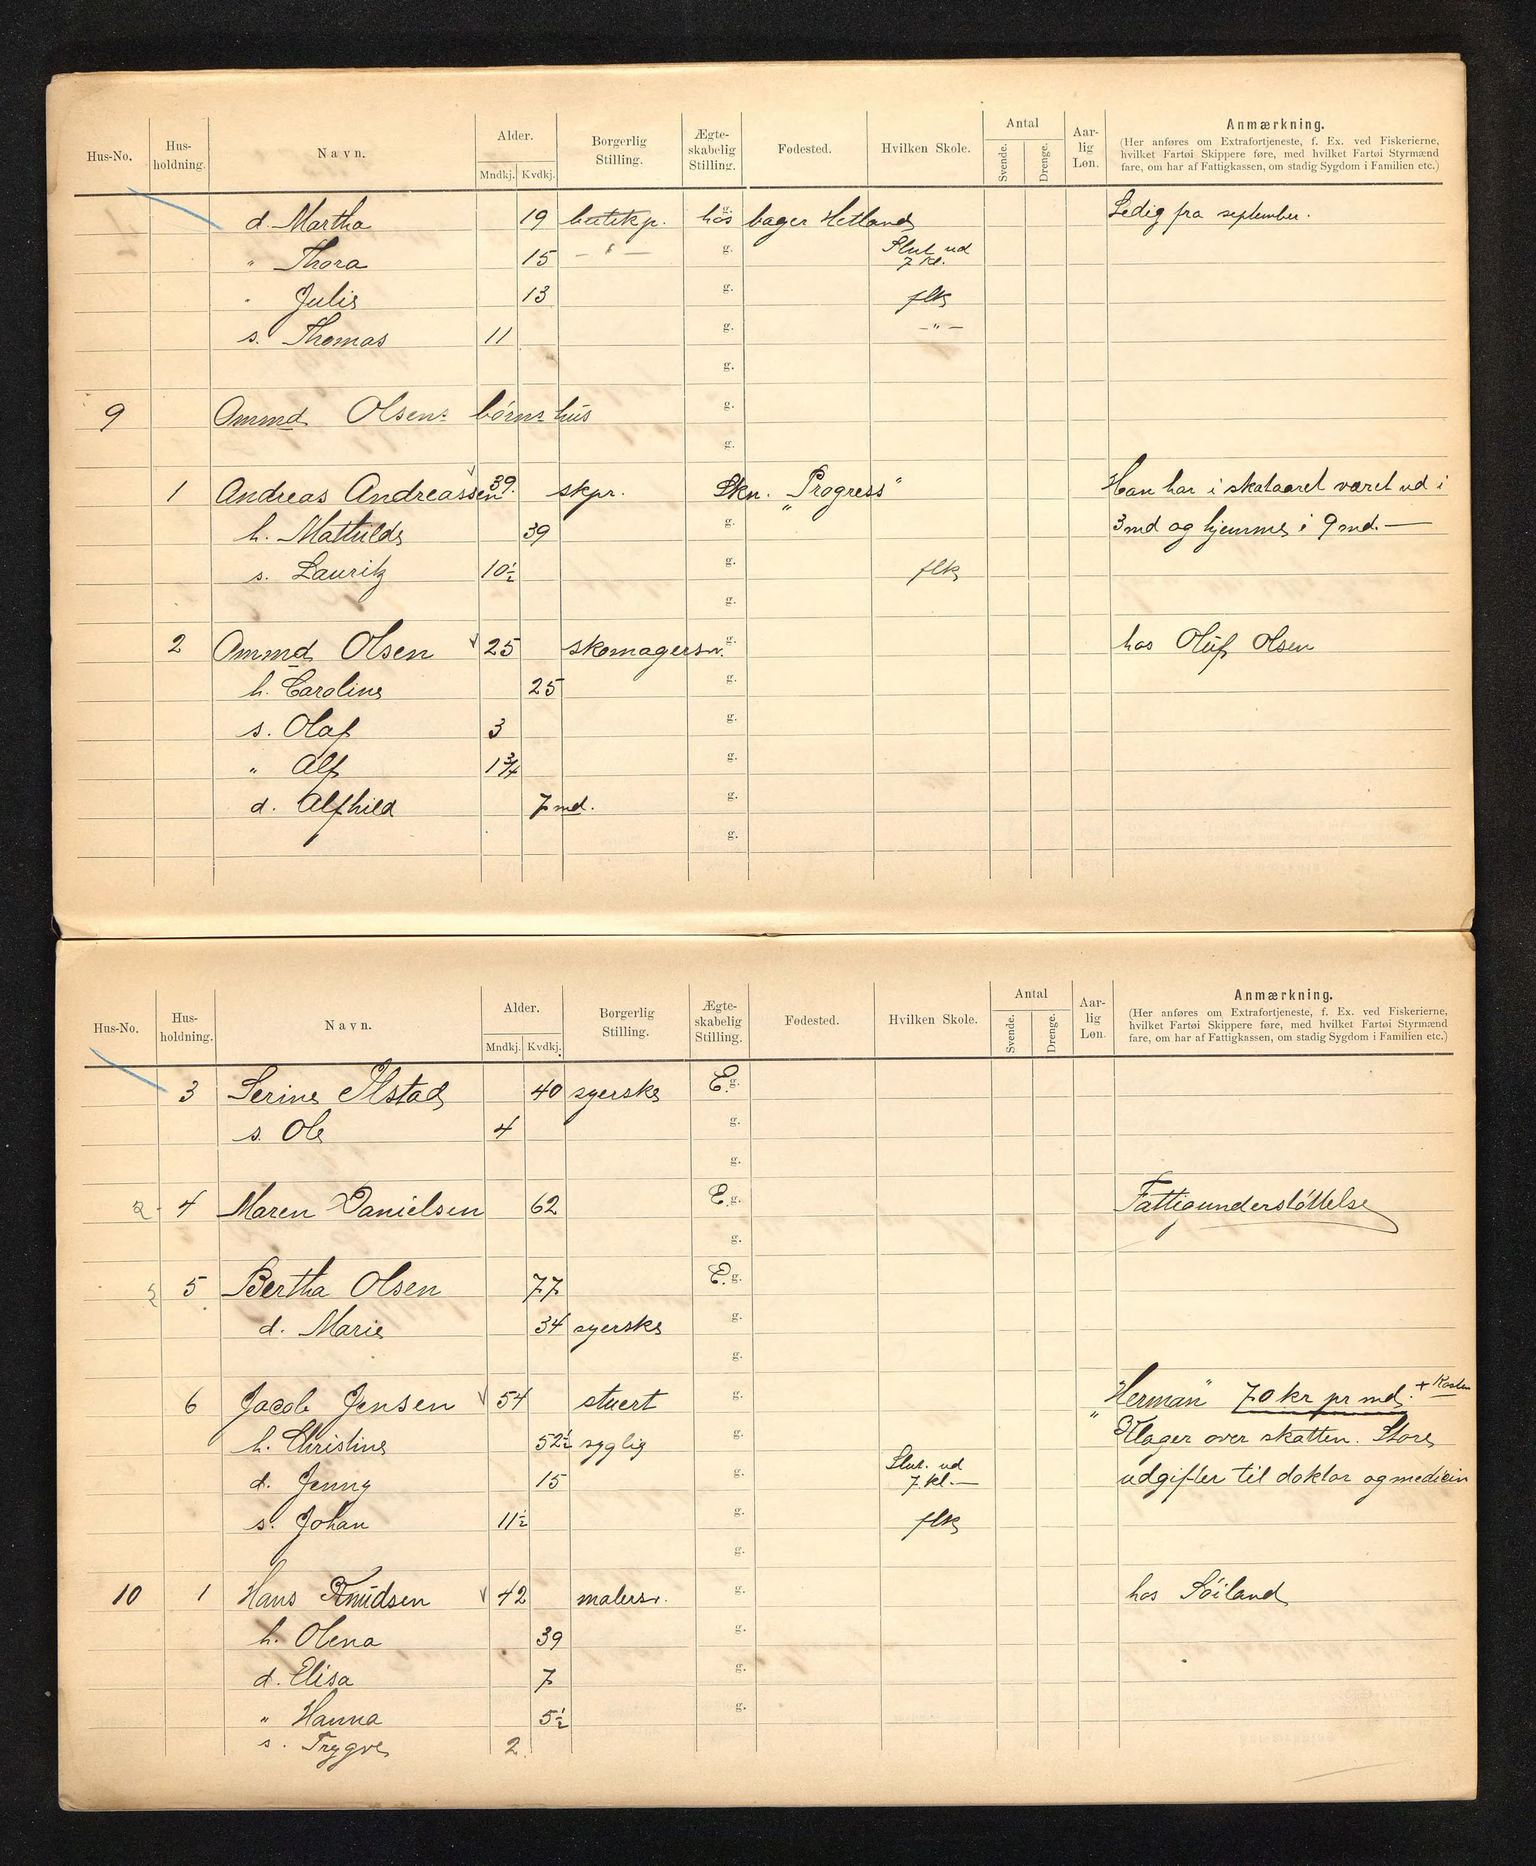 Hus-No. Hus-holdning. Navn. Alder. Mndkj. Kvdkj. Borgerlig Stilling. Ægte-skabelig Stilling. Fødested. Hvilken Skole. Antal Svende. Drenge. Aar-lig Løn. Anmærkning.
(Her anføres om Extrafortjeneste, f. Ex. ved Fiskerierne,
hvilket Fartøi Skippere føre, med hvilket Fartøi Styrmænd
fare, om har af Fattigkassen, om stadig Sygdom i Familien etc.)
d. Martha 19 butikp. hos g. bager Hetland Ledig fra september.
" Thora 15 — " — g. Slut. ud 7 kl.
" Julie 13 g. flk
s. Thomas 11 g. — " —
g.
9 Ommd Olsens børns hus g.
g.
1 Andreas Andreassen 39. skpr. Skn. "Progress" Han har i skataaret været ud i
h. Mathilde 39 g. 3 md og hjemme i 9 md. —
s. Lauritz 10½ g. flk
g.
2 Ommd Olsen 25 skomagersv. g. hos Oluf Olsen
h. Caroline 25 g.
s. Olaf 3 g.
" Alf 1¾ g.
d. Alfhild 7 md. g.
g.
Hus-No. Hus-holdning. Navn. Alder. Mndkj. Kvdkj. Borgerlig Stilling. Ægte-skabelig Stilling. Fødested. Hvilken Skole. Antal Svende. Drenge. Aar-lig Løn. Anmærkning.
(Her anføres om Extrafortjeneste, f. Ex. ved Fiskerierne,
hvilket Fartøi Skippere føre, med hvilket Fartøi Styrmænd
fare, om har af Fattigkassen, om stadig Sygdom i Familien etc.)
3 Serine Ilstad 40 syerske E. g.
s. Ole 4 g.
g.
4 Maren Danielsen 62 E. g. Fattigunderstøttelse
g.
5 Bertha Olsen 77 E. g.
d. Marie 34 syerske g.
g.
6 Jacob Jensen 54 stuert g. "Herman" 70 kr pr md. + Kosten
h. Christine 52½ syglig g. Klager over skatten. Store
d. Jenny 15 g. Slut. ud 7. kl. — udgifter til doktor og medicin
s. Johan 11½ g. flk
g.
10 1 Hans Knudsen 42 malersv. g. hos Søiland
h. Olena 39 g.
d. Elisa 7 g.
" Hanna 5½ g.
s. Trygve 2